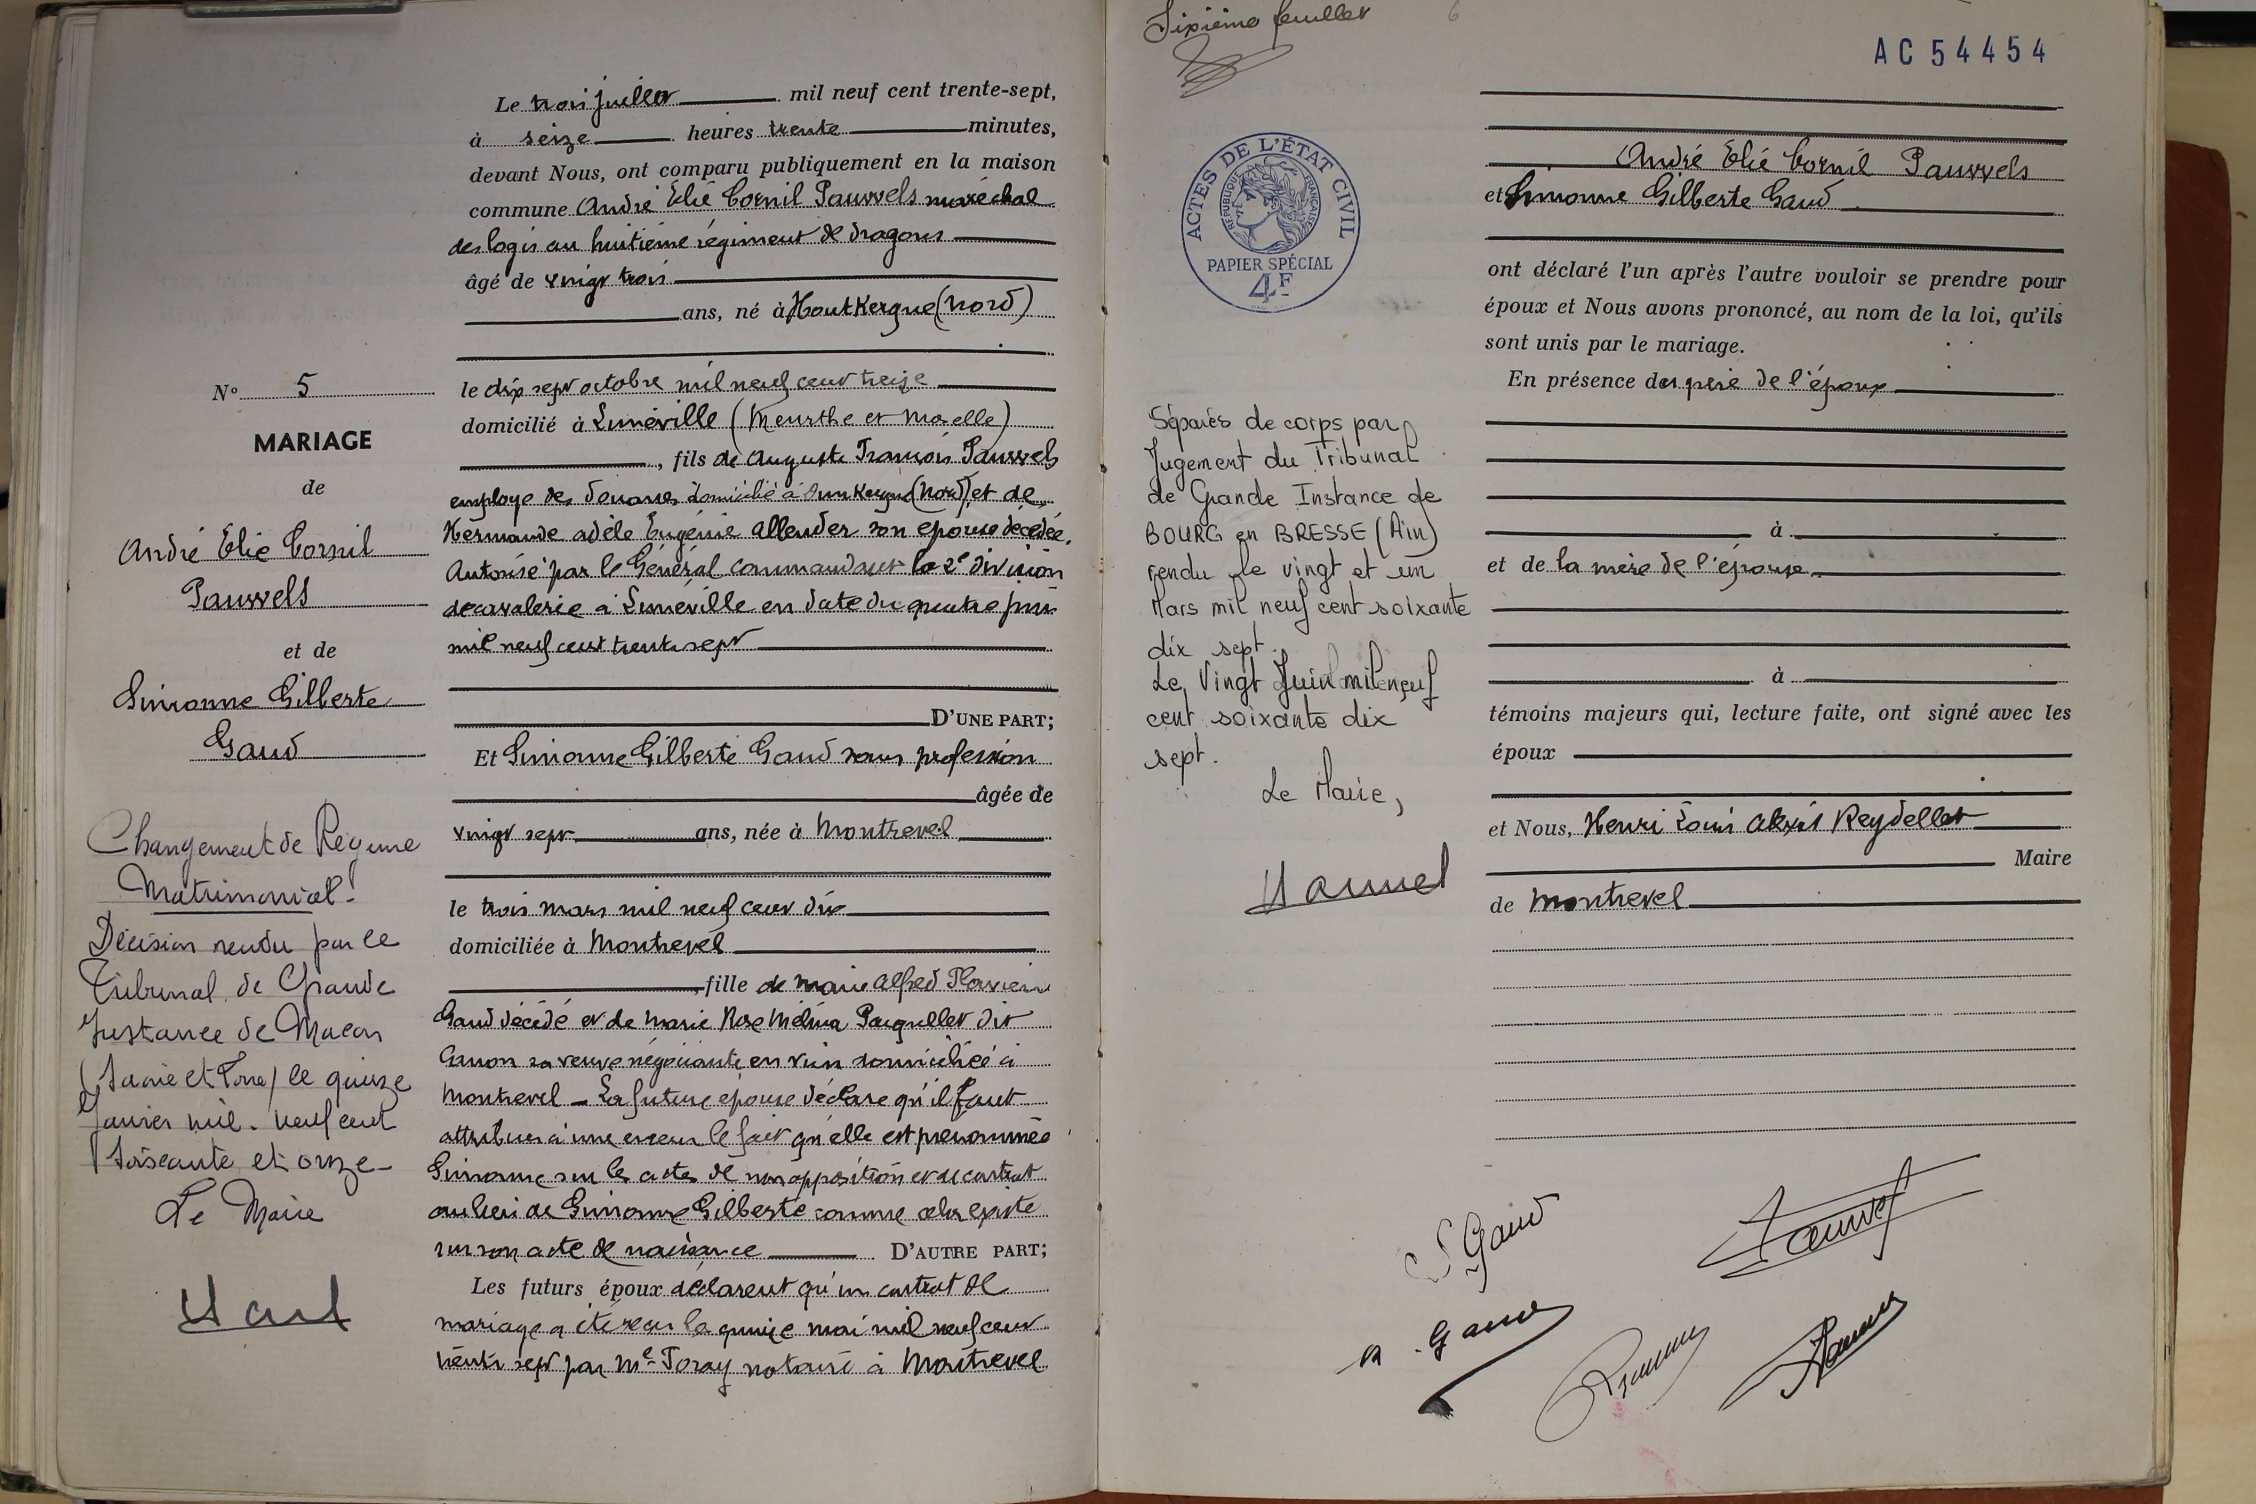 Le trois juillet mil neuf cent trente-sept,
à seize heures trente minutes,
devant Nous, ont comparu publiquement en la maison
commune André Élie Cornil Pauwels maréchal
des logis au huitième régiment de dragons
âgé de vingt trois
ans, né à Houtkerque (Nord)
le dix sept octobre mil neuf cent treize
domicilié à Lunéville (Meurthe et Moselle)
, fils de Auguste François Pauwels
employé des douanes domicilié à Dunkerque (Nord) et de
Hermande Adèle Eugénie Allender son épouse décédée.
Autorisé par le Général commandant la 2e division
de cavalerie à Lunéville en date du quatre juin
mil neuf cent trente sept
D'UNE PART;
Et Simonne Gilberte Gaud sans profession
âgée de
vingt sept ans, née à Montrevel
le trois mars mil neuf cent dix
domiciliée à Montrevel
, fille de Marie Alfred Flavien
Gaud décédé et de Marie Rose Mélina Paquellet dit
Canon sa veuve négociante en vin domiciliée à
Montrevel - La future épouse déclare qu'il faut
attribuer à une erreur le fait qu'elle est prénommée
Simonne sur les actes de non opposition et de contrat
au lieu de Simonne Gilberte comme cela existe
sur son acte de naissance D'AUTRE PART;
Les futurs époux déclarent qu'un contrat de
mariage a été reçu le quinze mai mil neuf cent
trente sept par Me Foray notaire à Montrevel
N° 5
MARIAGE
de
André Elie Cornil
Pauwels
et de
Simonne Gilberte
Gaud
Changement de Régime
Matrimonial.
Décision rendu par le
Tribunal de Grande
Instance de Macon
(Saone et Loire) le quinze
Janvier mil. neuf cent
soixante et onze -
Le Maire
Sixième feuillet 6
AC 54454
ACTES DE L'ÉTAT CIVIL
RÉPUBLIQUE FRANÇAISE
PAPIER SPÉCIAL
4F
André Élie Cornil Pauwels
et Simonne Gilberte Gaud
ont déclaré l'un après l'autre vouloir se prendre pour
époux et Nous avons prononcé, au nom de la loi, qu'ils
sont unis par le mariage.
En présence du père de l'époux
à
et de la mère de l'épouse
à
témoins majeurs qui, lecture faite, ont signé avec les
époux
et Nous, Henri Louis Alexis Reydellet
Maire
de Montrevel
Séparés de corps par
Jugement du Tribunal
de Grande Instance de
BOURG en BRESSE (Ain)
rendu le vingt et un
Mars mil neuf cent soixante
dix sept.
Le Vingt Juin mil neuf
cent soixante dix
sept.
Le Maire,
S Gaud
Pauwels